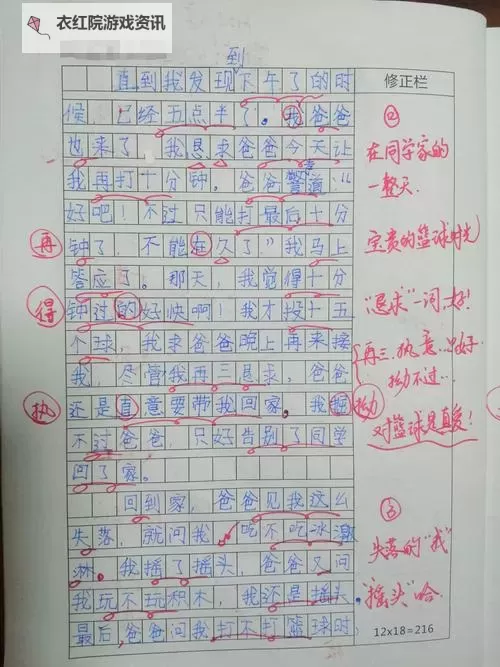 衣红院游戏资讯
到
直到我发现下午了的时
候，已经五点半了。我爸爸
也来了，我恳求爸爸今天让
我再打十分钟。爸爸警道：“
好吧！不过只能打最后十分
钟了，不能在久了。”我马上
答应了。那天，我觉得十分
钟过的好快啊！我才投十五
个球，我求爸爸晚上再来接
我，尽管我再三恳求，爸爸
还是直意要带我回家。我
不过爸爸，只好告别了同学
回了家。
回到家，爸爸见我这么
失落，就问我，吃不吃冰淇
淋，我摇了摇头，爸爸又问
我玩不玩积木，我还是摇头，
最后，爸爸问我打不打篮球时
再
得
执
修正栏
②
在同学家的
一整天.
宝贵的篮球时光
“恳求”一词，好！
再三、执意…只好
拗不过…
拗
对篮球是真爱！
③
失落的“我”
“摇头”哈
12x18=216